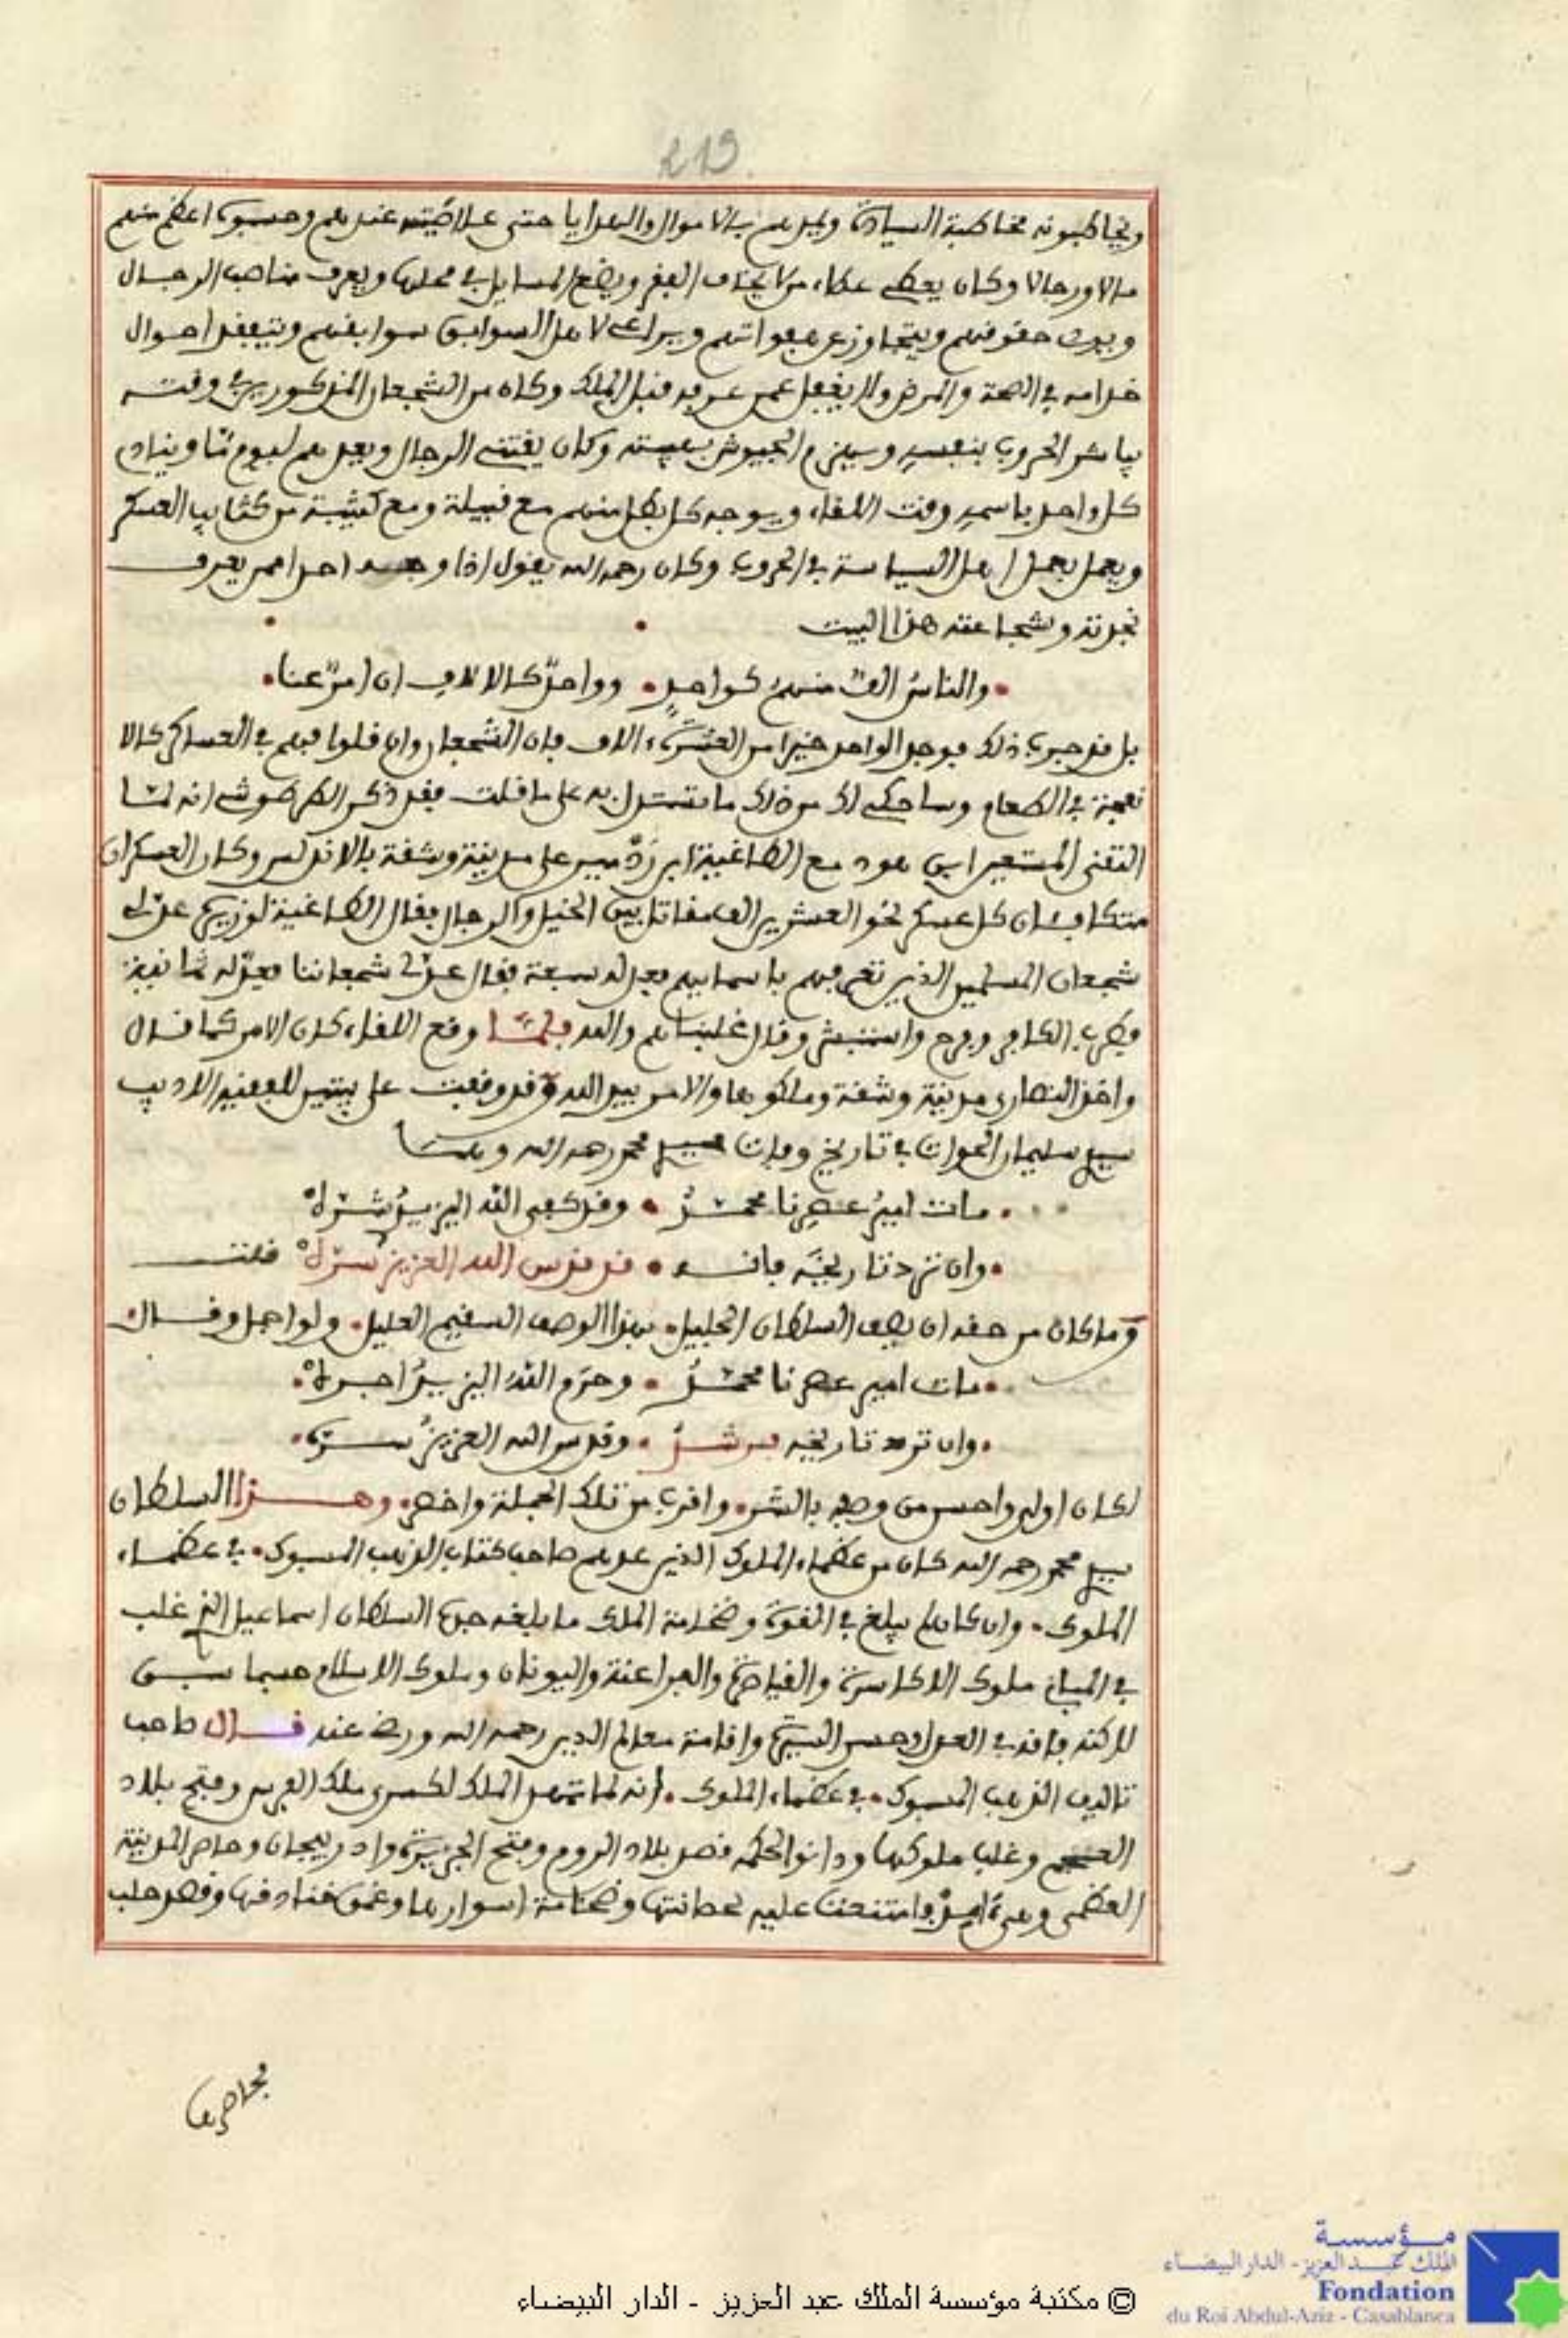 219
ويخاطبونه مخاطبة السيادة ويمدهم بالاموال والهدايا حتى علا صيته عندهم وحسبوه اعظم منهم
مالا ورجالا وكان يعطي عطاء من لا يخاف الفقر ويضع المسايل في محلها ويعرف مناصب الرجال
ويودي حقوقهم ويتجاوز عن هفواتهم ويراعي لاهل السوابق سوابقهم ويتفقد احوال
خدامه في الصحة والمرض ولا يغفل عمن عرفه قبل الملك وكان من الشجعان المذكورين في وقته
يباشر الحروب بنفسه ويهزم الجيوش بهيبته وكان يقتني الرجال ويعدهم ليوم ما وينادي
كل واحد باسمه وقت اللقاء ويوجه كل بطل منهم مع قبيلة ومع كتيبة من كتايب العسكر
ويعمل بعمل اهل السياسة في الحروب وكان رحمه الله يقول اذا وجه احدا ممن يعرف
نجدته وشجاعته هذا البيت
والناس الف منهم كواحد • وواحد كالالاف ان امر عنا
بل قد جرب ذلك فوجد الواحد خيرا من العشرة ءالاف فان الشجعان وان قلوا فهم في العساكر كالا
نفحة في الطعام وساحكي لك من ذلك ما تستدل به على ما قلت فقد ذكر الطرطوشي انه لما
التقى المستعين ابن هود مع الطاغية ابن ردمير على مدينة وشقة بالاندلس وكان العسكران
متكافيان كل عسكر نحو العشرين الف مقاتل بين الخيل والرجال فقال الطاغية لوزيره عد لي
شجعان المسلمين الذين تعرفهم باسمايهم فعد له سبعة فقال عد لي شجعاننا فعد له ثمانية
فطرب الكافر وفرح واستبشر وقال غلبناهم والله فلما وقع اللقاء كان الامر كما قال
واخذ النصارى مدينة وشقة وملكوها والامر بيد الله وقد وقفت على بيتين للفقيه الاديب
سيدي سليمان الحوات في تاريخ وفات سيدي محمد رحمه الله وهما
مات امير عصرنا محمد • وقد كفى الله اليزيد شره
وان ترد تاريخه فانه • قد قدس الله العزيز سره قلت
وما كان من حقه ان يصف السلطان الجليل • بهذا الوصف السقيم العليل • ولو اجمل وقال
مات امير عصرنا محمد • وحرم الله اليزيد اجره
وان ترد تاريخه برشد • وقدس الله العزيز سره
لكان اولى واحسن من وصفه بالشر • واقرب من تلك الجملة واخصر • وهذا السلطان
سيدي محمد رحمه الله كان من عظماء الملوك الذين عدهم صاحب كتاب الذهب المسبوك • في عظماء
الملوك • وان كان لم يبلغ في القوة وضخامة الملك ما بلغه جده السلطان اسماعيل الذي غلب
في المباني ملوك الاكاسرة والقياصرة والفراعنة واليونان وملوك الاسلام حسبما سبق
لاكنه فاقه في العدل وحسن السيرة واقامة معالم الدين رحمه الله ورضي عنه قال صاحب
تاليف الذهب المسبوك • في عظماء الملوك • انه لما تمهد الملك لكسرى ملك الفرس وفتح بلاد
العجم وغلب ملوكها ودانوا لحكمه قصد بلاد الروم وفتح الجزيرة واذربيجان وحاصر المدينة
العظمى وهي ءامد وامتنعت عليه لحصانتها وضخامة اسوارها وعمق خنادقها وقصد حلب
فحاصرها
مؤسسة
الملك عبد العزيز - الدار البيضاء
Fondation
du Roi Abdul-Aziz - Casablanca
© مكتبة مؤسسة الملك عبد العزيز - الدار البيضاء